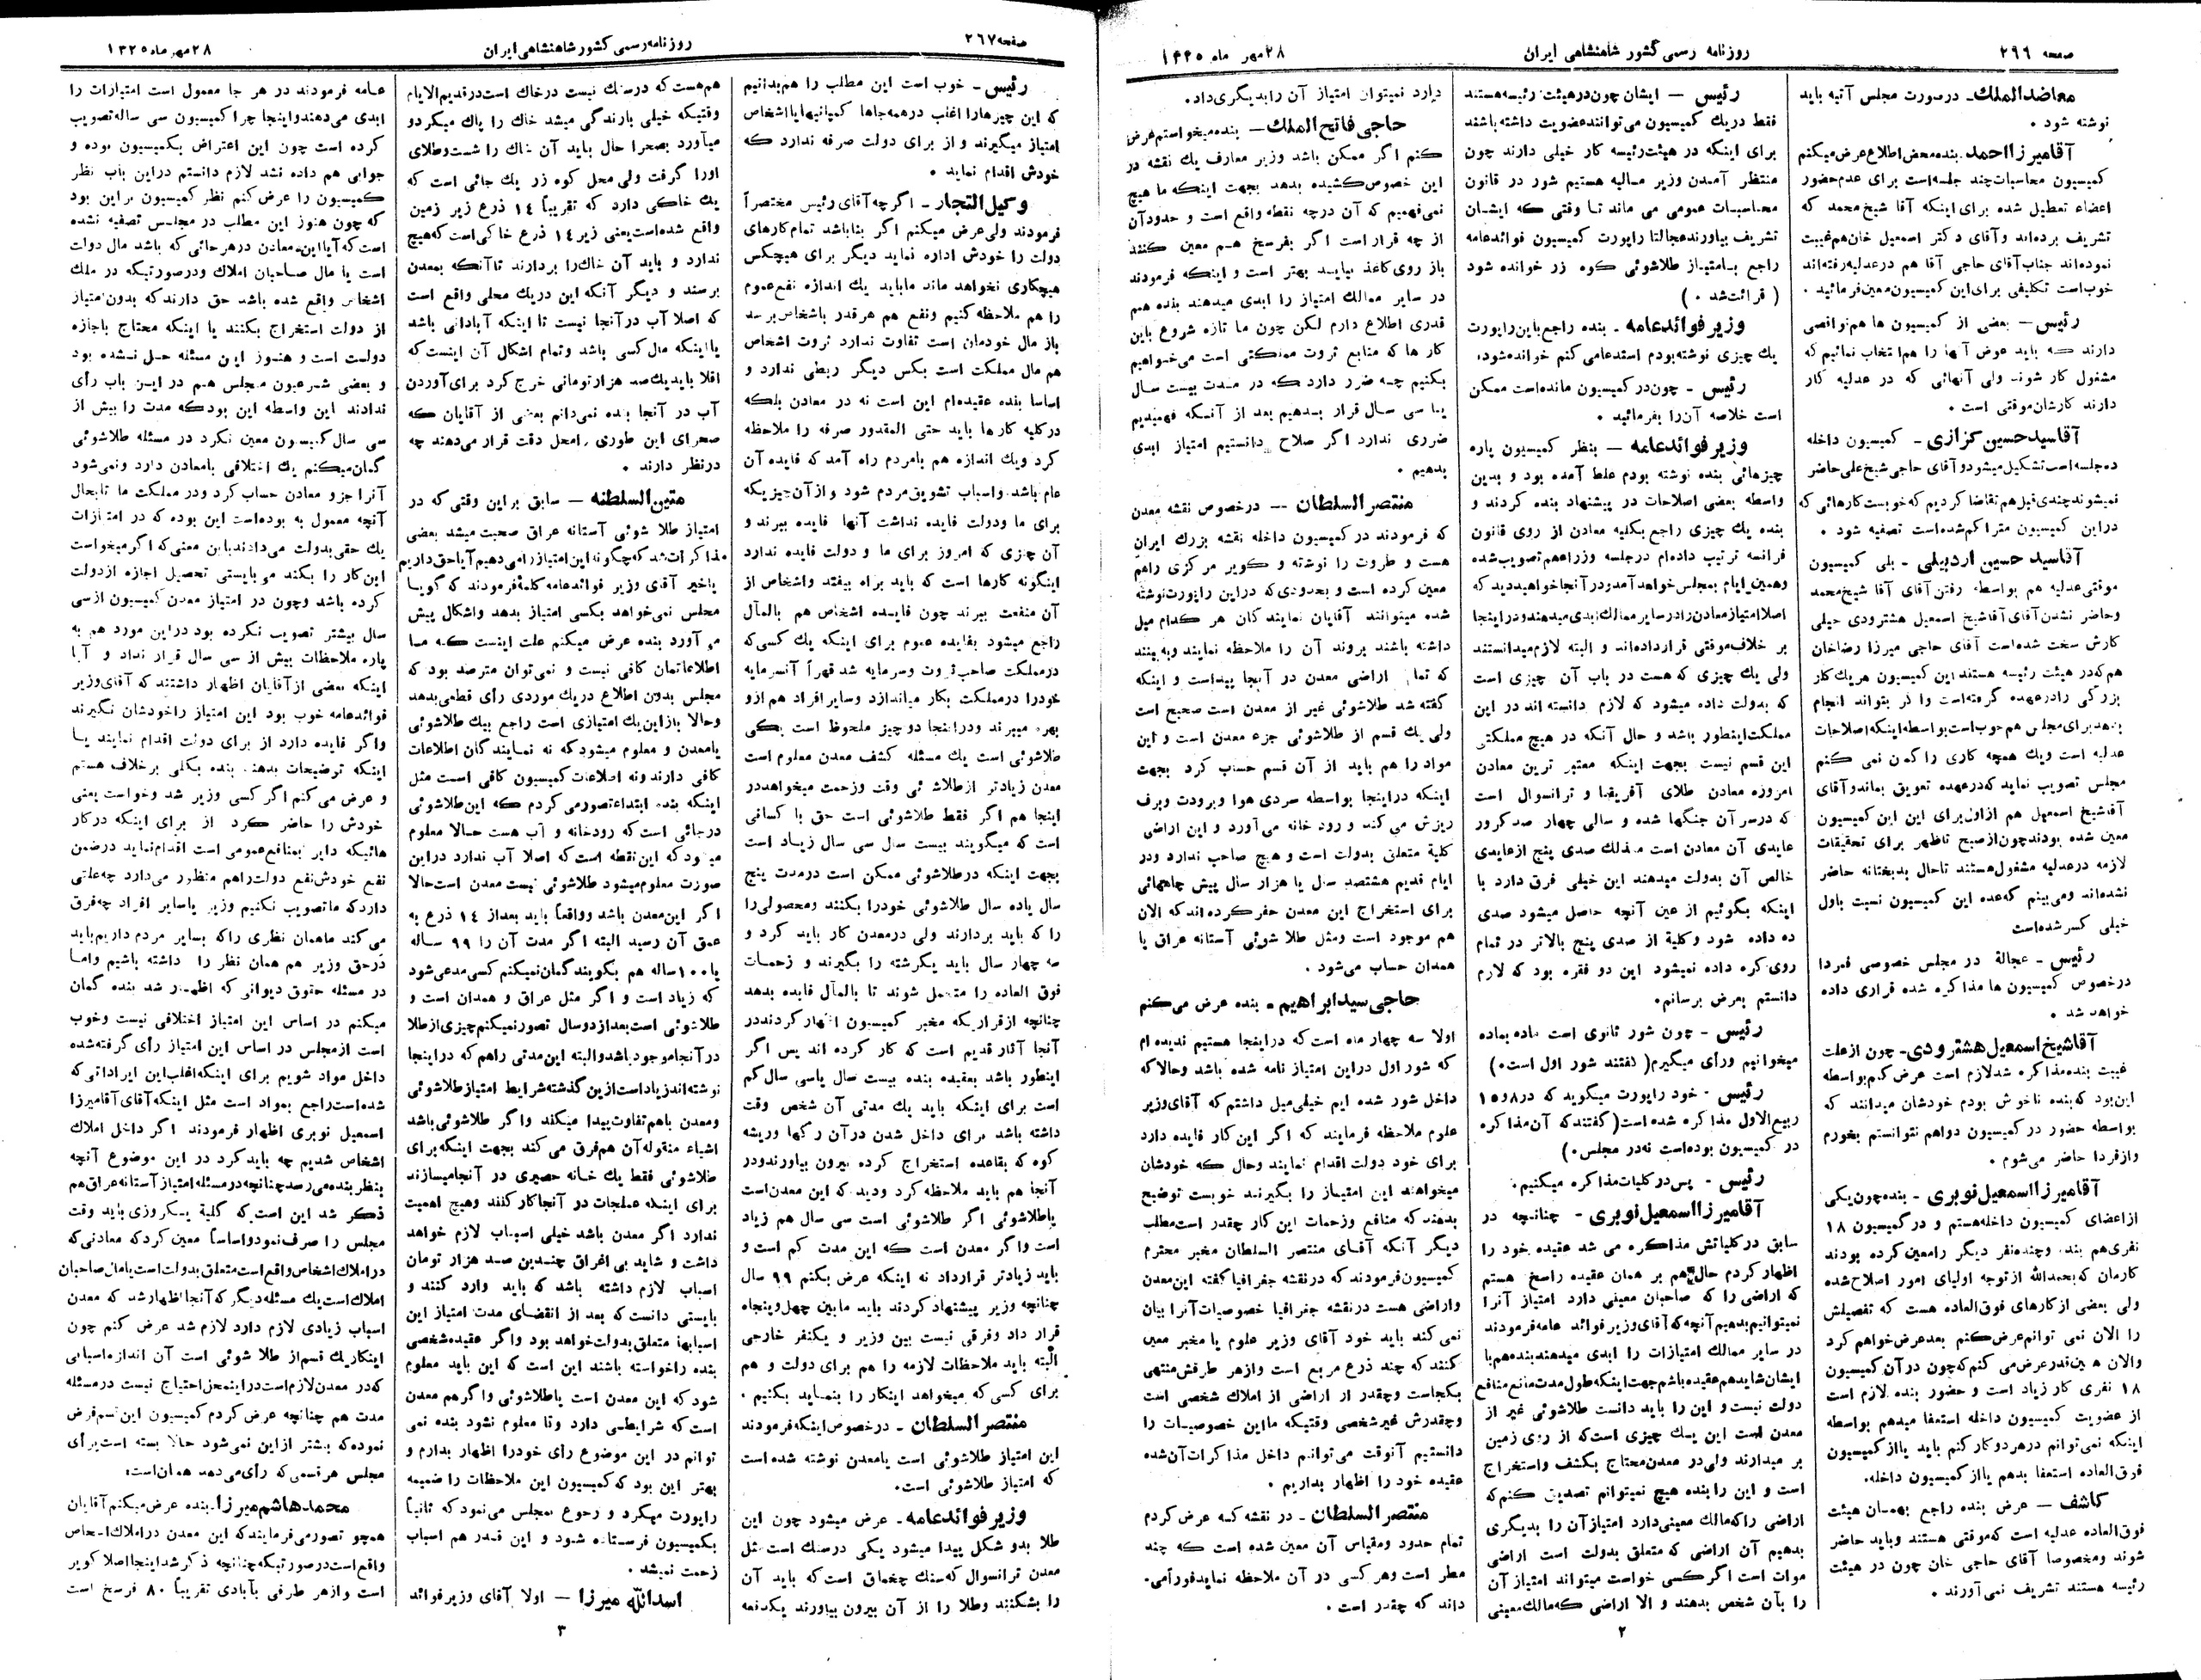 صفحه ۲۹۶
روزنامه رسمی کشور شاهنشاهی ایران
۲۸ مهر ماه ۱۳۲۵
معاضدالملك_ درصورت مجلس آتیه باید
نوشته شود .
آقامیرزااحمد_ بنده محض اطلاع عرض میکنم
کمیسیون محاسبات چند جلسه است برای عدم حضور
اعضاء تعطیل شده برای اینکه آقا شیخ محمد که
تشریف برده اند و آقای دکتر اسمعیل خان هم غیبت
نموده اند جناب آقای حاجی آقا هم در عدلیه رفته اند
خوب است تکلیفی برای این کمیسیون معین فرمائید .
رئیس – بعضی از کمیسیون ها هم نواقصی
دارند که باید عوض آنها را هم انتخاب نمائیم که
مشغول کار شوند ولی آنهائی که در عدلیه کار
دارند کارشان موقتی است .
آقاسیدحسین کزازی_ کمیسیون داخله
ده جلسه است تشکیل میشود و آقای حاجی شیخ علی حاضر
نمیشوند چندی قبل هم تقاضا کردیم که خوبست کارهائی که
دراین کمیسیون متراکم شده است تصفیه شود .
آقاسید حسین اردبیلی_ بلی کمیسیون
موقتی عدلیه هم بواسطه رفتن آقای آقا شیخ محمد
وحاضر نشدن آقای آقاشیخ اسمعیل هشترودی خیلی
کارش سخت شده است آقای حاجی میرزا رضاخان
هم که در هیئت رئیسه هستند این کمیسیون هر یك کار
بزرگی را در عهده گرفته است و اگر بتواند انجام
بدهد برای مجلس هم خوب است بواسطه اینکه اصلاحات
عدلیه است ویك همچه کاری را گمان نمی کنم
مجلس تصویب نماید که در عهده تعویق بماند و آقای
آقاشیخ اسمعیل هم از اول برای این کمیسیون
معین شده بودند چون از صبح تا ظهر برای تحقیقات
لازمه در عدلیه مشغول هستند تا حال بدبختانه حاضر
نشده اند و می بینم که عده این کمیسیون نسبت باول
خیلی کسر شده است
رئیس – عجالة در مجلس خصوصی فردا
درخصوص کمیسیون ها مذاکره شده قراری داده
خواهد شد .
آقاشیخ اسمعیل هشترودی_ چون از علت
غیبت بنده مذاکره شد لازم است عرض کنم بواسطه
این بود که بنده ناخوش بودم خودشان میدانند که
بواسطه حضور در کمیسیون دواهم نتوانستم بخورم
وازفردا حاضر می شوم .
آقامیرزا اسمعیل نوبری_ بنده چون یکی
از اعضای کمیسیون داخله هستم و در کمیسیون ۱۸
نفری هم بنده وچند نفر دیگر را معین کرده بودند
کارمان که بحمدالله از توجه اولیای امور اصلاح شده
ولی بعضی از کارهای فوق العاده هست که تفصیلش
را الان نمی توانم عرض کنم بعد عرض خواهم کرد
والان همین قدر عرض می کنم که چون در آن کمیسیون
۱۸ نفری کار زیاد است و حضور بنده لازم است
از عضویت کمیسیون داخله استعفا میدهم بواسطه
اینکه نمی توانم در هر دو کار کنم باید یا از کمیسیون
فوق العاده استعفا بدهم یا از کمیسیون داخله.
کاشف – عرض بنده راجع بهمان هیئت
فوق العاده عدلیه است که موقتی هستند وباید حاضر
شوند ومخصوصا آقای حاجی خان چون در هیئت
رئیسه هستند تشریف نمی آورند .
رئیس – ایشان چون درهیئت رئیسه هستند
فقط دریك کمیسیون می توانند عضویت داشته باشند
برای اینکه در هیئت رئیسه کار خیلی دارند چون
منتظر آمدن وزیر مالیه هستیم شور در قانون
محاسبات عمومی می ماند تا وقتی که ایشان
تشریف بیاورند عجالتا راپورت کمیسیون فوائدعامه
راجع بامتیاز طلاشوئی کوه زر خوانده شود
( قرائت شد . )
وزیر فوائدعامه_ بنده راجع باین راپورت
یك چیزی نوشته بودم استدعامی کنم خوانده شود.
رئیس – چون در کمیسیون مانده است ممکن
است خلاصه آن را بفرمائید .
وزیر فوائدعامه – بنظر کمیسیون پاره
چیزهائی بنده نوشته بودم غلط آمده بود و بدین
واسطه بعضی اصلاحات در پیشنهاد بنده کردند و
بنده یك چیزی راجع بکلیه معادن از روی قانون
فرانسه ترتیب داده ام درجلسه وزراهم تصویب شده
وهمین ایام بمجلس خواهد آمد و در آنجا خواهید دید که
اصلا امتیاز معادن را در سایر ممالك ابدی میدهند و در اینجا
بر خلاف موقتی قرار داده اند و البته لازم میدانستند
ولی یك چیزی که هست در باب آن چیزی است
که بدولت داده میشود که لازم دانسته اند در این
مملکت اینطور باشد و حال آنکه در هیچ مملکتی
این قسم نیست بجهت اینکه معتبر ترین معادن
امروزه معادن طلای آفریقا و ترانسوال است
که در سر آن جنگها شده و سالی چهار صد کرور
عایدی آن معادن است معذلك صدی پنج از عایدی
خالص آن بدولت میدهند این خیلی فرق دارد با
اینکه بگوئیم از عین آنچه حاصل میشود صدی
ده داده شود وکلیة از صدی پنج بالاتر در تمام
روی کره داده نمیشود این دو فقره بود که لازم
دانستم بعرض برسانم.
رئیس – چون شور ثانوی است ماده بماده
میخوانیم ورأی میگیرم( گفتند شور اول است.)
رئیس – خود راپورت میگوید که در ۸ و ۱۵
ربیع الاول مذاکره شده است( گفتند که آن مذاکره
در کمیسیون بوده است نه در مجلس . )
رئیس – پس در کلیات مذاکره میکنیم.
آقامیرزا اسمعیل نوبری – چنانچه در
سابق در کلیاتش مذاکره می شد عقیده خود را
اظهار کردم حال هم بر همان عقیده راسخ هستم
که اراضی را که صاحبان معینی دارد امتیاز آنرا
نمیتوانیم بدهیم آنچه که آقای وزیر فوائد عامه فرمودند
در سایر ممالك امتیازات را ابدی میدهند بنده هم با
ایشان شاید هم عقیده باشم جهت اینکه طول مدت مانع منافع
دولت نیست و این را باید دانست طلاشوئی غیر از
معدن است این یك چیزی است که از روی زمین
بر میدارند ولی در معدن محتاج بکشف واستخراج
است و این را بنده هیچ نمیتوانم تصدیق کنم که
اراضی را که مالك معینی دارد امتیاز آن را بدیگری
بدهیم آن اراضی که متعلق بدولت است اراضی
موات است اگر کسی خواست میتواند امتیاز آن
را بآن شخص بدهند و الا اراضی که مالك معینی
دارد نمیتوان امتیاز آن را بدیگری داد.
حاجی فاتح الملك – بنده میخواستم عرض
کنم اگر ممکن باشد وزیر معارف یك نقشه در
این خصوص کشیده بدهد بجهت اینکه ما هیچ
نمی فهمیم که آن درچه نقطه واقع است و حدود آن
از چه قرار است اگر بفرسخ هم معین کنند
باز روی کاغذ بیاید بهتر است و اینکه فرمودند
در سایر ممالك امتیاز را ابدی میدهند بنده هم
قدری اطلاع دارم لکن چون ما تازه شروع باین
کار ها که منابع ثروت مملکتی است می خواهیم
بکنیم چه ضرر دارد که در مدت بیست سال
یا سی سال قرار بدهیم بعد از آنکه فهمیدیم
ضرری ندارد اگر صلاح دانستیم امتیاز ابدی
بدهیم .
منتصر السلطان – درخصوص نقشه معدن
که فرمودند در کمیسیون داخله نقشه بزرك ایران
هست و طروت را نوشته و کویر مرکزی راهم
معین کرده است و بحدودی که در این راپورت نوشته
شده میتوانند آقایان نمایندگان هر کدام میل
داشته باشند بروند آن را ملاحظه نمایند وببینند
که تمام اراضی معدن در آنجا پیداست و اینکه
گفته شد طلاشوئی غیر از معدن است صحیح است
ولی یك قسم از طلاشوئی جزء معدن است و این
مواد را هم باید از آن قسم حساب کرد بجهت
اینکه دراینجا بواسطه سردی هوا وبرودت وبرف
ریزش می کند و رود خانه می آورد و این اراضی
کلیة متعلق بدولت است و هیچ صاحب ندارد ودر
ایام قدیم هشتصد سال یا هزار سال پیش چاههائی
برای استخراج این معدن حفر کرده اند که الان
هم موجود است ومثل طلا شوئی آستانه عراق یا
همدان حساب می شود .
حاجی سیدابراهیم_ بنده عرض می کنم
اولا سه چهار ماه است که در اینجا هستیم ندیده ام
که شور اول دراین امتیاز نامه شده باشد وحالا که
داخل شور شده ایم خیلی میل داشتم که آقای وزیر
علوم ملاحظه فرمایند که اگر این کار فایده دارد
برای خود دولت اقدام نمایند وحال که خودشان
میخواهند این امتیاز را بگیرند خوبست توضیح
بدهند که منافع وزحمات این کار چقدر است مطلب
دیگر آنکه آقای منتصر السلطان مخبر محترم
کمیسیون فرمودند که در نقشه جغرافیا گفته این معدن
واراضی هست در نقشه جغرافیا خصوصیات آنرا بیان
نمی کند باید خود آقای وزیر علوم یا مخبر معین
کنند که چند ذرع مربع است وازهر طرفش منتهی
بکجاست وچقدر از اراضی از املاك شخصی است
وچقدرش غیر شخصی وقتیکه ما این خصوصیات را
دانستیم آنوقت می توانیم داخل مذاکرات آن شده
عقیده خود را اظهار بداریم .
منتصر السلطان_ در نقشه که عرض کردم
تمام حدود ومقیاس آن معین شده است که چند
مطر است وهر کسی در آن ملاحظه نماید فوراً می
داند که چقدر است .
۲
صفحه ۲۶۷
روزنامه رسمی کشور شاهنشاهی ایران
۲۸ مهر ماه ۱۳۲۵
رئیس_ خوب است این مطالب را هم بدانیم
که این چیزها را اغلب در همه جاها کمپانیها یا اشخاص
امتیاز میگیرند و از برای دولت صرفه ندارد که
خودش اقدام نماید .
وکیل التجار_ اگرچه آقای رئیس مختصراً
فرمودند ولی عرض میکنم اگر بنا باشد تمام کارهای
دولت را خودش اداره نماید دیگر برای هیچکس
هیچکاری نخواهد ماند ما باید یك اندازه نفع عموم
را هم ملاحظه کنیم ونفع هم هرقدر باشخاص برسد
باز مال خودمان است تفاوت ندارد ثروت اشخاص
هم مال مملکت است بکس دیگر ربطی ندارد و
اساسا بنده عقیده ام این است نه در معادن بلکه
در کلیه کارها باید حتی المقدور صرفه را ملاحظه
کرد ویك اندازه هم بامردم راه آمد که فایده آن
عام باشد واسباب تشویق مردم شود و از آن چیزیکه
برای ما ودولت فایده نداشت آنها فایده ببرند و
آن چیزی که امروز برای ما و دولت فایده ندارد
اینگونه کارها است که باید براه بیفتد واشخاص از
آن منفعت ببرند چون فایده اشخاص هم بالمآل
راجع میشود بفایده عموم برای اینکه یك کسی که
در مملکت صاحب ثروت وسرمایه شد قهراً آنسرمایه
خودرا در مملکت بکار میاندازد وسایر افراد هم از و
بهره میبرند ودراینجا دوچیز ملحوظ است یکی
طلاشوئی است یك مسئله کشف معدن معلوم است
معدن زیادتر از طلاشوئی وقت وزحمت میخواهد در
اینجا هم اگر فقط طلاشوئی است حق با کسانی
است که میگویند بیست سال سی سال زیاد است
بجهت اینکه در طلاشوئی ممکن است درمدت پنج
سال یاده سال طلاشوئی خودرا بکنند ومحصولی را
را که باید بردارند ولی درمعدن کار باید کرد و
سه چهار سال باید یکرشته را بگیرند و زحمات
فوق العاده را متحمل شوند تا بالمآل فایده بدهد
چنانچه از قراریکه مخبر کمیسیون اظهار کردند در
آنجا آثار قدیم است که کار کرده اند پس اگر
اینطور باشد بعقیده بنده بیست سال یا سی سال کم
است برای اینکه باید یك مدتی آن شخص وقت
داشته باشد برای داخل شدن در آن رگها وریشه
کوه که بقاعده استخراج کرده بیرون بیاورند و در
آنجا هم باید ملاحظه کرد ودید که این معدن است
یا طلاشوئی اگر طلاشوئی است سی سال هم زیاد
است واگر معدن است که این مدت کم است و
باید زیادتر قرارداد نه اینکه عرض بکنم ۹۹ سال
چنانچه وزیر پیشنهاد کردند باید مابین چهل وپنجاه
قرار داد وفرقی نیست بین وزیر و یکنفر خارجی
البته باید ملاحظات لازمه را هم برای دولت و هم
برای کسی که میخواهد اینکار را بنماید بکنیم .
منتصر السلطان_ درخصوص اینکه فرمودند
این امتیاز طلاشوئی است یا معدن نوشته شده است
که امتیاز طلاشوئی است.
وزیر فوائدعامه_ عرض میشود چون این
طلا بدو شکل پیدا میشود یکی درسنك است مثل
معدن ترانسوال که سنك چخماق است که باید آن
را بشکنند وطلا را از آن بیرون بیاورند یکدفعه
هم هست که درسنك نیست درخاك است در قدیم الایام
وقتیکه خیلی بارندگی میشد خاك را پاك میکرد و
میآورد بصحرا حال باید آن خاك را شست وطلای
اورا گرفت ولی محل کوه زر یك جائی است که
یك خاکی دارد که تقریباً ۱٤ ذرع زیر زمین
واقع شده است یعنی زیر ۱٤ ذرع خاکی است که هیچ
ندارد و باید آن خاك را بردارند تا آنکه بمعدن
برسند و دیگر آنکه این دریك محلی واقع است
که اصلا آب در آنجا نیست تا اینکه آبادانی باشد
یا اینکه مال کسی باشد وتمام اشکال آن اینست که
اقلا باید یك صد هزار تومانی خرج کرد برای آوردن
آب در آنجا بنده نمی دانم بعضی از آقایان که
صحرای این طوری را محل دقت قرار می دهند چه
درنظر دارند .
متین السلطنه – سابق براین وقتی که در
امتیاز طلا شوئی آستانه عراق صحبت میشد بعضی
مذاکرات شد که چگونه این امتیاز را می دهیم آیا حق داریم
یاخیر آقای وزیر فوائدعامه کلمة فرمودند که گویا
مجلس نمی خواهد بکسی امتیاز بدهد واشکال پیش
می آورد بنده عرض میکنم علت اینست که ما
اطلاعاتمان کافی نیست و نمی توان مترصد بود که
مجلس بدون اطلاع دریك موردی رأی قطعی بدهد
وحالا باز این یك امتیازی است راجع بیك طلاشوئی
یا معدن و معلوم میشود که نه نمایندگان اطلاعات
کافی دارند ونه اطلاعات کمیسیون کافی است مثل
اینکه بنده ابتداء تصور می کردم که این طلاشوئی
در جائی است که رودخانه و آب هست حالا معلوم
میشود که این نقطه است که اصلا آب ندارد دراین
صورت معلوم میشود طلاشوئی نیست معدن است حالا
اگر این معدن باشد وواقعاً باید بعد از ۱٤ ذرع به
عمق آن رسید البته اگر مدت آن را ۹۹ ساله
یا ۱۰۰ ساله هم بگویند گمان نمیکنم کسی مدعی شود
که زیاد است و اگر مثل عراق و همدان است و
طلاشوئی است بعد از دو سال تصور نمیکنم چیزی از طلا
در آنجا موجود باشد و البته این مدتی راهم که در اینجا
نوشته اند زیاد است از این گذشته شرایط امتیاز طلاشوئی
ومعدن باهم تفاوت پیدا میکند واگر طلاشوئی باشد
اشیاء منقوله آن هم فرق می کند بجهت اینکه برای
طلاشوئی فقط یك خانه حصیری در آنجا میسازند
برای اینکه عملجات در آنجا کار کنند وهیچ اهمیت
ندارد اگر معدن باشد خیلی اسباب لازم خواهد
داشت و شاید بی اغراق چندین صد هزار تومان
اسباب لازم داشته باشد که باید وارد کنند و
بایستی دانست که بعد از انقضای مدت امتیاز این
اسبابها متعلق بدولت خواهد بود واگر عقیده شخصی
بنده راخواسته باشند این است که این باید معلوم
شود که این معدن است یا طلاشوئی واگر هم معدن
است که شرایطی دارد وتا معلوم نشود بنده نمی
توانم در این موضوع رأی خودرا اظهار بدارم و
بهتر این بود که کمیسیون این ملاحظات را ضمیمه
راپورت میکرد و رجوع بمجلس می نمود که ثانیاً
بکمیسیون فرستاده شود و این قدر هم اسباب
زحمت نمیشد .
اسدالله میرزا – اولا آقای وزیر فوائد
عامه فرمودند در هر جا معمول است امتیازات را
ابدی می دهند و اینجا چرا کمیسیون سی ساله تصویب
کرده است چون این اعتراض بکمیسیون بوده و
جوابی هم داده نشد لازم دانستم دراین باب نظر
کمیسیون را عرض کنم نظر کمیسیون براین بود
که چون هنوز این مطلب در مجلس تصفیه نشده
است که آیا این معادن در هر جائی که باشد مال دولت
است یا مال صاحبان املاك ودرصورتیکه در ملك
اشخاص واقع شده باشد حق دارند که بدون امتیاز
از دولت استخراج بکنند یا اینکه محتاج باجازه
دولت است و هنوز این مسئله حل نشده بود
و بعضی شرعیون مجلس هم در این باب رأی
ندادند این واسطه این بود که مدت را بیش از
سی سال کمیسیون معین نکرد در مسئله طلاشوئی
گمان میکنم یك اختلافی بامعادن دارد ونمی شود
آنرا جزو معادن حساب کرد ودر مملکت ما تا بحال
آنچه معمول به بوده است این بوده که در امتیازات
یك حقی بدولت می دادند باین معنی که اگر میخواست
این کار را بکند می بایستی تحصیل اجازه از دولت
کرده باشد وچون در امتیاز معدن کمیسیون از سی
سال بیشتر تصویب نکرده بود دراین مورد هم به
پاره ملاحظات بیش از سی سال قرار نداد و اما
اینکه بعضی از آقایان اظهار داشتند که آقای وزیر
فوائدعامه خوب بود این امتیاز را خودشان نگیرند
واگر فایده دارد از برای دولت اقدام نمایند یا
اینکه توضیحات بدهند بنده بکلی برخلاف هستم
و عرض می کنم اگر کسی وزیر شد وخواست یعنی
خودش را حاضر کرد از برای اینکه در کار
هائیکه دایر بمنافع عمومی است اقدام نماید درضمن
نفع خودش نفع دولت راهم منظور می دارد چه علتی
دارد که ما تصویب نکنیم وزیر یا سایر افراد چه فرق
می کند ما همان نظری را که بسایر مردم داریم باید
درحق وزیر هم همان نظر را داشته باشیم واما
در مسئله حقوق دیوانی که اظهار شد بنده گمان
میکنم در اساس این امتیاز اختلافی نیست وخوب
است از مجلس در اساس این امتیاز رأی گرفته شده
داخل مواد شویم برای اینکه اغلب این ایراداتی که
شده است راجع بمواد است مثل اینکه آقای آقامیرزا
اسمعیل نوبری اظهار فرمودند اگر داخل املاك
اشخاص شدیم چه باید کرد در این موضوع آنچه
بنظر بنده می رسد چنانچه در مسئله امتیاز آستانه عراق هم
ذکر شد این است که کلیة یکروزی باید وقت
مجلس را صرف نمود و اساساً معین کرد که معادنی که
در املاك اشخاص واقع است متعلق بدولت است یا مال صاحبان
املاك است یك مسئله دیگر که آنجا اظهار شد که معدن
اسباب زیادی لازم دارد لازم شد عرض کنم چون
اینکار یك قسم از طلا شوئی است آن اندازه اسبابی
که در معدن لازم است در اینمحل احتیاج نیست در مسئله
مدت هم چنانچه عرض کردم کمیسیون این قسم فرض
نموده که بیشتر از این نمی شود حالا بسته است برأی
مجلس هر قسمی که رأی می دهد همان است.
محمدهاشم میرزا_ بنده عرض میکنم آقایان
همچو تصور می فرمایند که این معدن در املاك اشخاص
واقع است در صورتیکه چنانچه ذکر شد اینجا اصلا کویر
است وازهر طرفی بآبادی تقریباً ۸۰ فرسخ است
۳